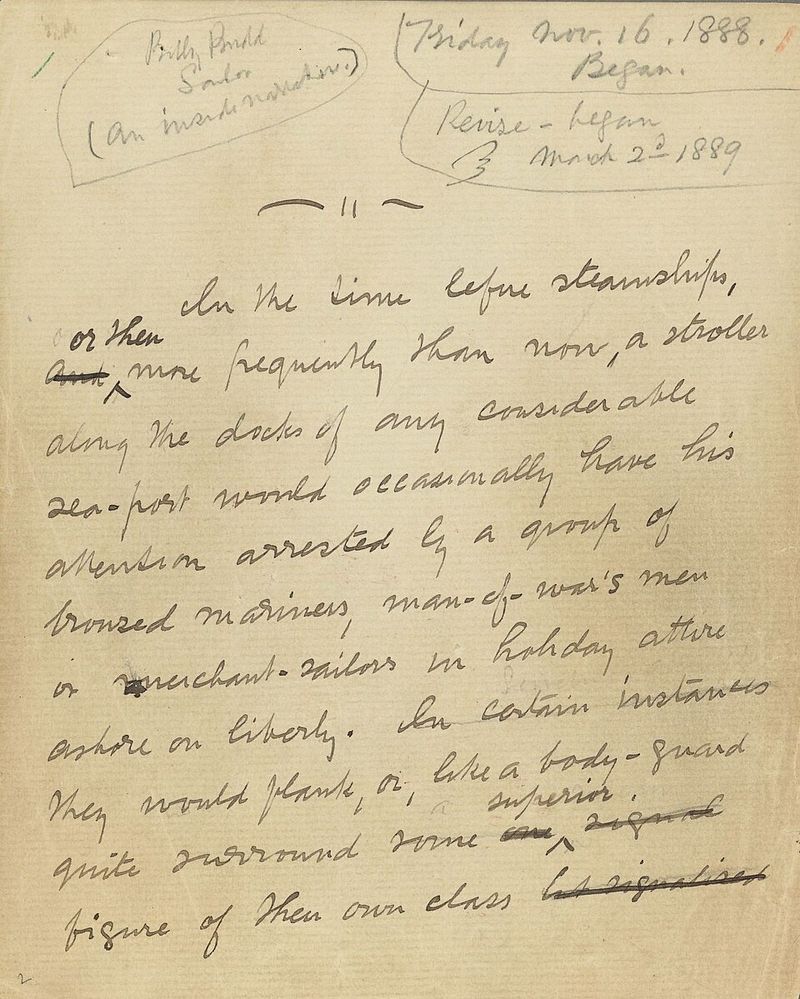 Billy Budd
Sailor
(An inside narrative.)
Friday Nov. 16. 1888.
Began.
Revise – began
March 2d 1889
In the time before steamships,
or then
and more frequently than now, a stroller
along the docks of any considerable
sea-port would occasionally have his
attention arrested by a group of
bronzed mariners, man-of-war's men
or merchant-sailors in holiday attire
ashore on liberty. In certain instances
they would flank, or, like a body-guard
superior
quite surround some one signal
figure of their own class but signalized
2